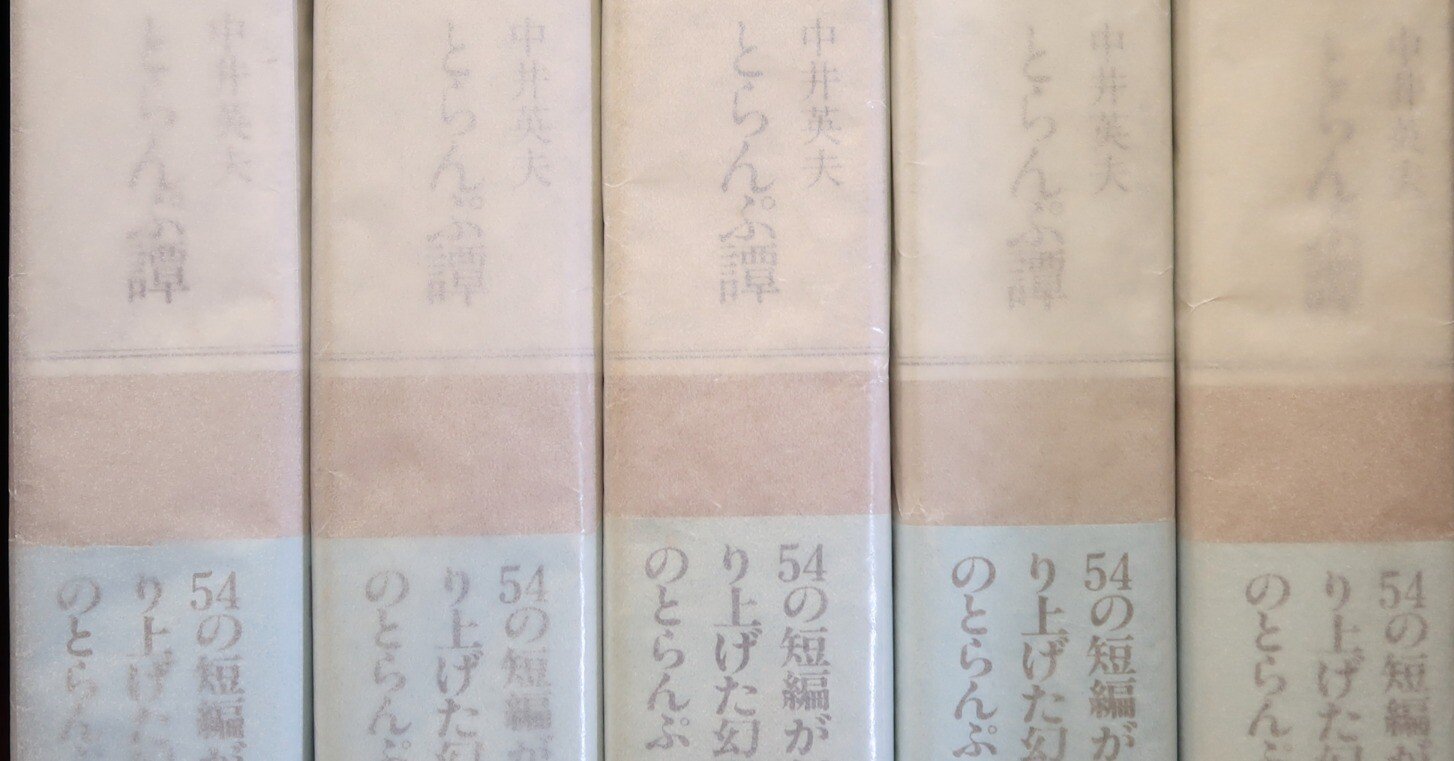 中井英夫
とらんぷ譚
54の短編が
り上げた
のとらん
中井英夫
とらんぷ譚
54の短編が
り上げた幻
のとらんぷ
中井英夫
とらんぷ譚
54の短編が
り上げた幻
のとらんぷ
中井英夫
とらんぷ譚
54の短編が
り上げた幻
のとらんぷ
中井英夫
とらんぷ譚
54の短編が
り上げた幻
のとらん